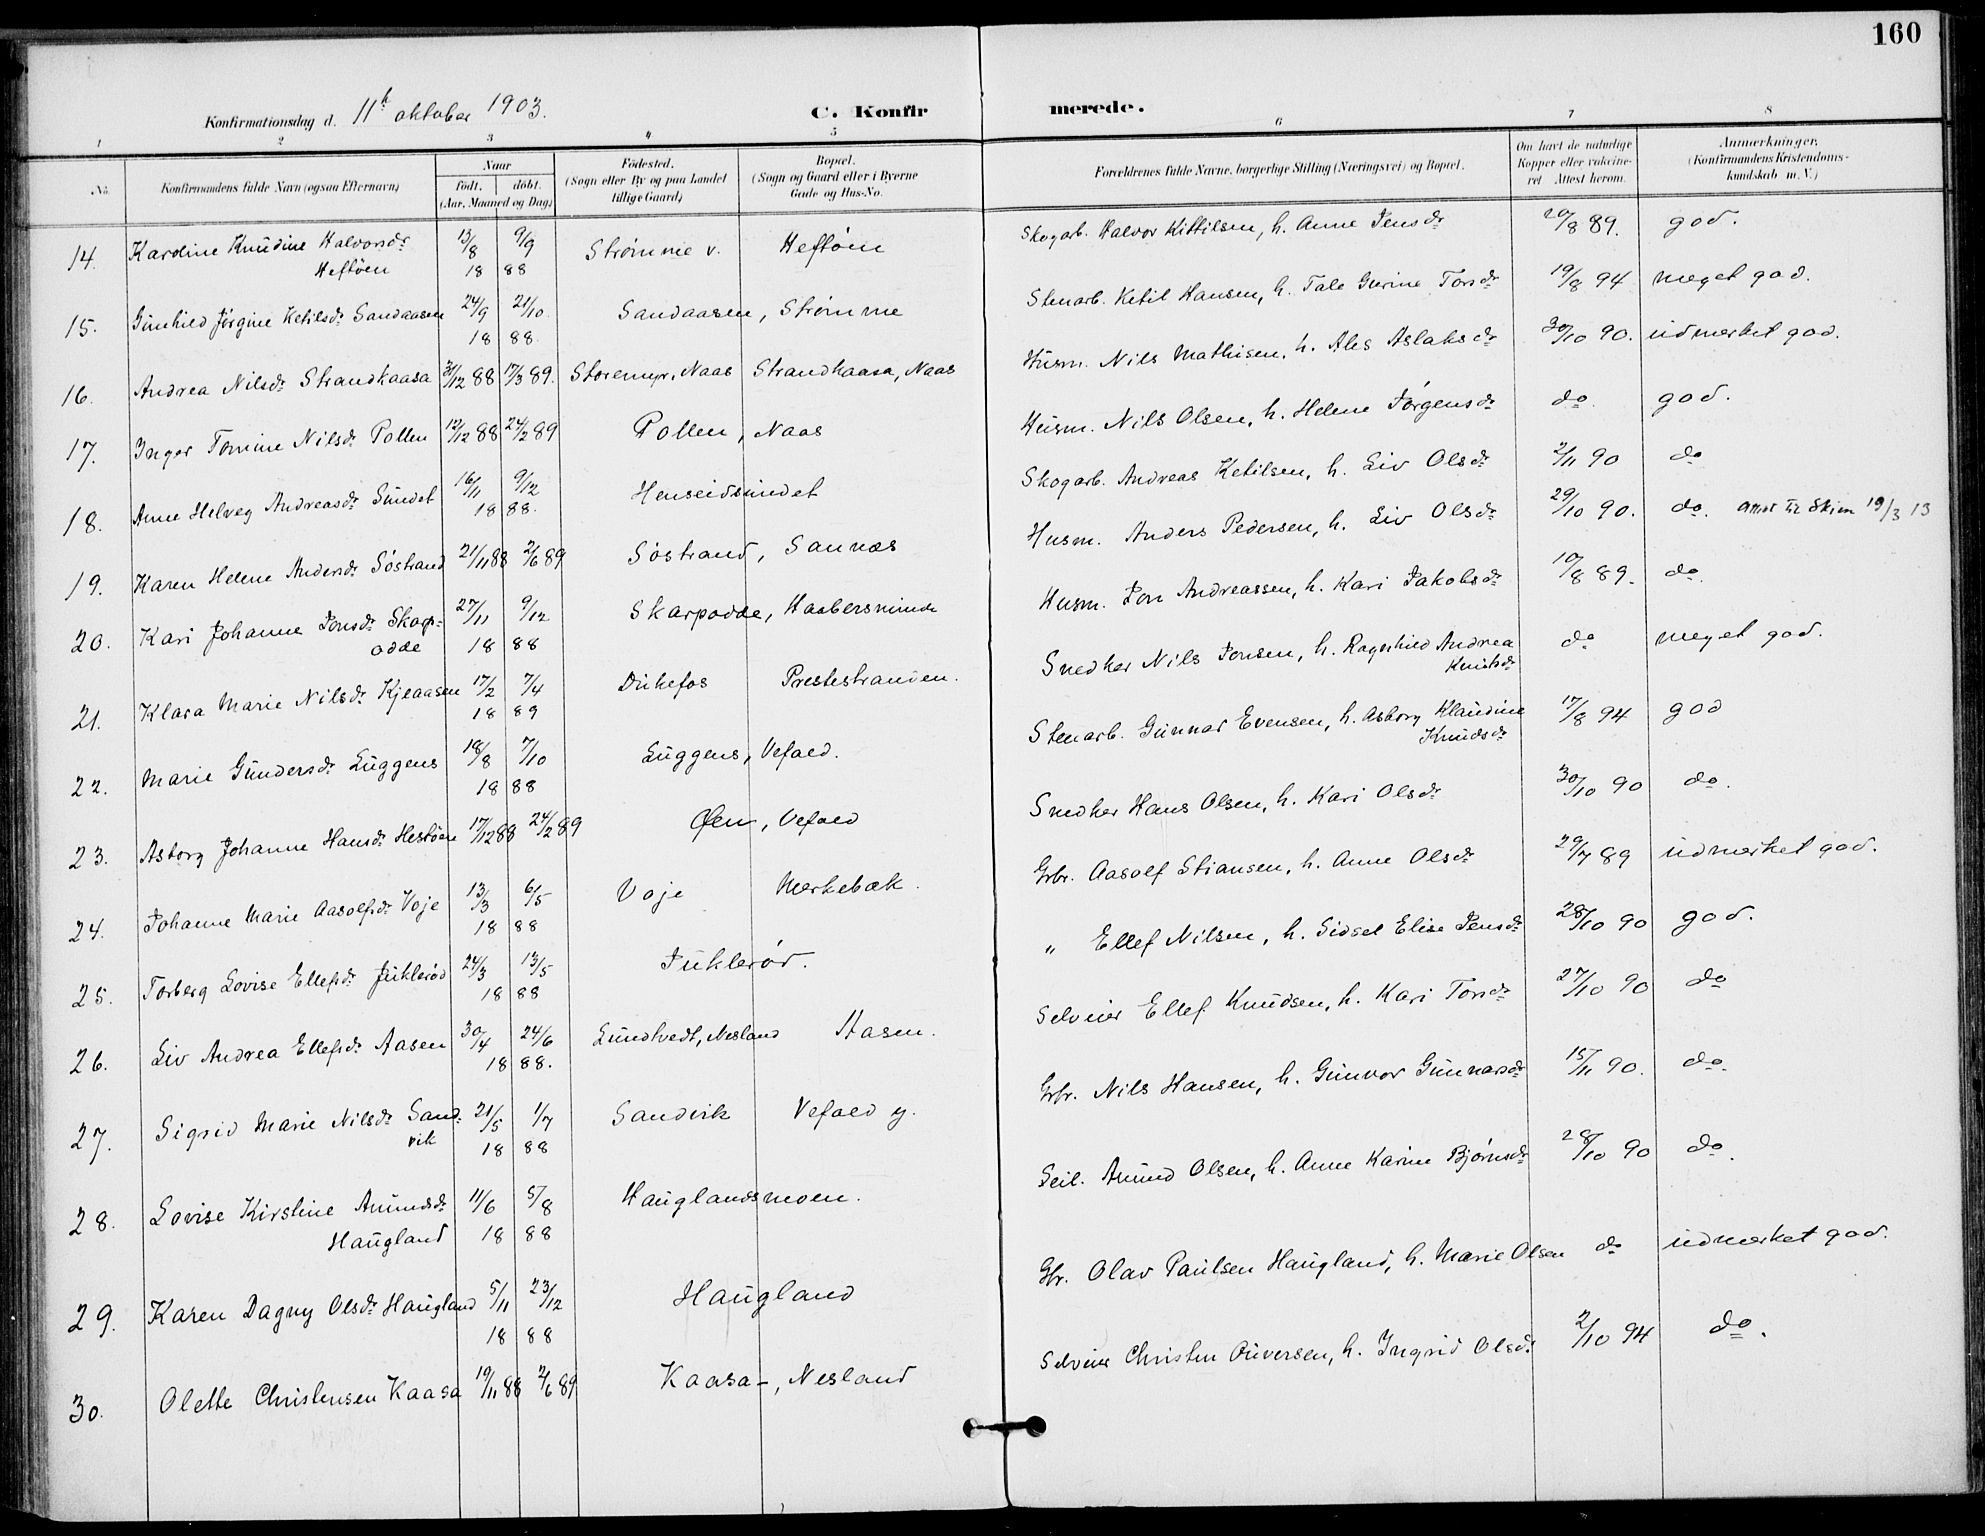 160
Konfirmationsdag d. 11h oktober 1903.
C. Konfirmerede.
1 2 3 4 5 6 7 8
No. Konfirmandens fulde Navn (ogsaa Efternavn) Naar født. døbt. (Aar, Maaned og Dag) Fødested. (Sogn eller By og paa Landet tillige Gaard) Bopæl. (Sogn og Gaard eller i Byerne Gade og Hus-No. Forældrenes fulde Navne, borgerlige Stilling (Næringsvei) og Bopæl. Om havt de naturlige Kopper eller vakcineret. Attest herom. Anmærkninger. (Konfirmandens Kristendomskundskab m. V.)
14. Karoline Knudine Halvorsdr 13/8 9/9 Strømme v. Heftöen Skogarb. Halvor Kittilsen, h. Anne Jensdr 20/8 89. god.
Heftöen 18 88
15. Gunhild Jørgine Ketilsdr Sandaasen 24/9 21/10 Sandaasen, Strømme Stenarb. Ketil Hansen, h. Tale Gurine Torsdr 19/8 94 meget god.
18 88.
16. Andrea Nilsdr Strandkaasa 31/12 88 17/3 89. Storemyr, Naas Strandkaasa, Naas Husm. Nils Mathisen, h. Ales Aslaksdr 30/10 90. udmærket god.
17. Inger Tomine Nilsdr Pollen 12/12 88 24/2 89 Pollen, Naas Husm. Nils Olsen, h. Helene Jörgensdr do. god.
18. Anne Helveg Andreasdr Sundet 16/11 9/12 Henseidsundet Skogarb. Andreas Ketilsen, h. Liv Olsdr 2/11 90 do
18 88.
19. Karen Helene Andersdr Söstrand 21/11 88 2/6 89 Söstrand, Sannæs Husm. Anders Pedersen, h. Liv Olsdr 29/10 90. do. attest til Skien 19/3 13
20. Kari Johanne Jonsdr Skarp- 27/11 9/12 Skarpodde, Haabersminde Husm. Jon Andreassen, h. Kari Jakobsdr 10/8 89. do.
odde 18 88
21. Klara Marie Nilsdr Kjeaasen 17/2 7/4 Dukefos Prestestranden. Snedker Nils Jonsen, h. Ragnhild Andrea do meget god.
18 89 Knutsdr
22. Marie Gundersdr Luggens 18/8 7/10 Luggens, Vefald. Stenarb. Gunnar Evensen, h. Asborg Klaudine 17/8 94 god
18 88 Knudsdr
23. Asborg Johanne Hansdr Hestöen 17/12 88 24/2 89 Øen, Vefald Snedker Hans Olsen, h. Kari Olsdr 30/10 90 do.
24. Johanne Marie Aasolfsdr Voje 13/3 6/5 Voje Merkebæk. Grbr. Aasolf Stiansen, h. Anne Olsdr 29/7 89 udmerket god.
18 88
25. Torberg Lovise Ellefsdr Juklerød 24/3 13/5 Juklerør. " Ellef Nilsen, h. Sidsel Elise Jensdr 28/10 90 god.
18 88
26. Liv Andrea Ellefsdr Aasen 30/4 24/6 Lundtvedt, Nesland Aasen. Selveier Ellef Knudsen, h. Kari Torsdr 27/10 90 do
18 88.
27. Sigrid Marie Nilsdr Sand- 21/5 1/7 Sandvik Vefald y. Grbr. Nils Hansen, h. Gunvor Gunnarsdr 15/11 90. do.
vik 18 88
28. Lovise Kirstine Amundsdr 11/6 5/8 Hauglandsmoen. Seil. Amund Olsen, h. Anne Karine Bjørnsdr 28/10 90 do.
Haugland 18 88
29. Karen Dagny Olsdr Haugland 5/11 23/12 Haugland Gbr. Olav Paulsen Haugland, h. Marie Olsen do udmerket god.
18 88
30. Olette Christensen Kaasa 19/11 88 2/6 89 Kaasa-, Nesland Selveier Christen Ouversen, h. Ingrid Olsdr 2/10 94 do.